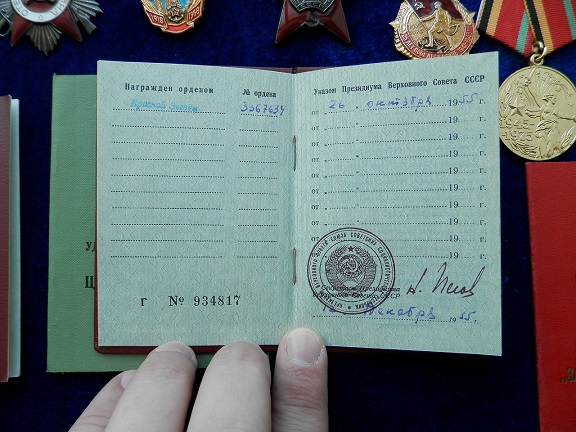 Награжден орденом
№ ордена
Красной Звезды
3367634
г № 934817
Указом Президиума Верховного Совета СССР
от 26 " октября 1955 г.
от " 19 г.
от " 19 г.
от " 19 г.
от " 19 г.
от " 19 г.
от " 19 г.
от " 19 г.
от " 19 г.
от " 19 г.
Секретарь Президиума
Верховного Совета СССР
декабря 1955.
1918
1975